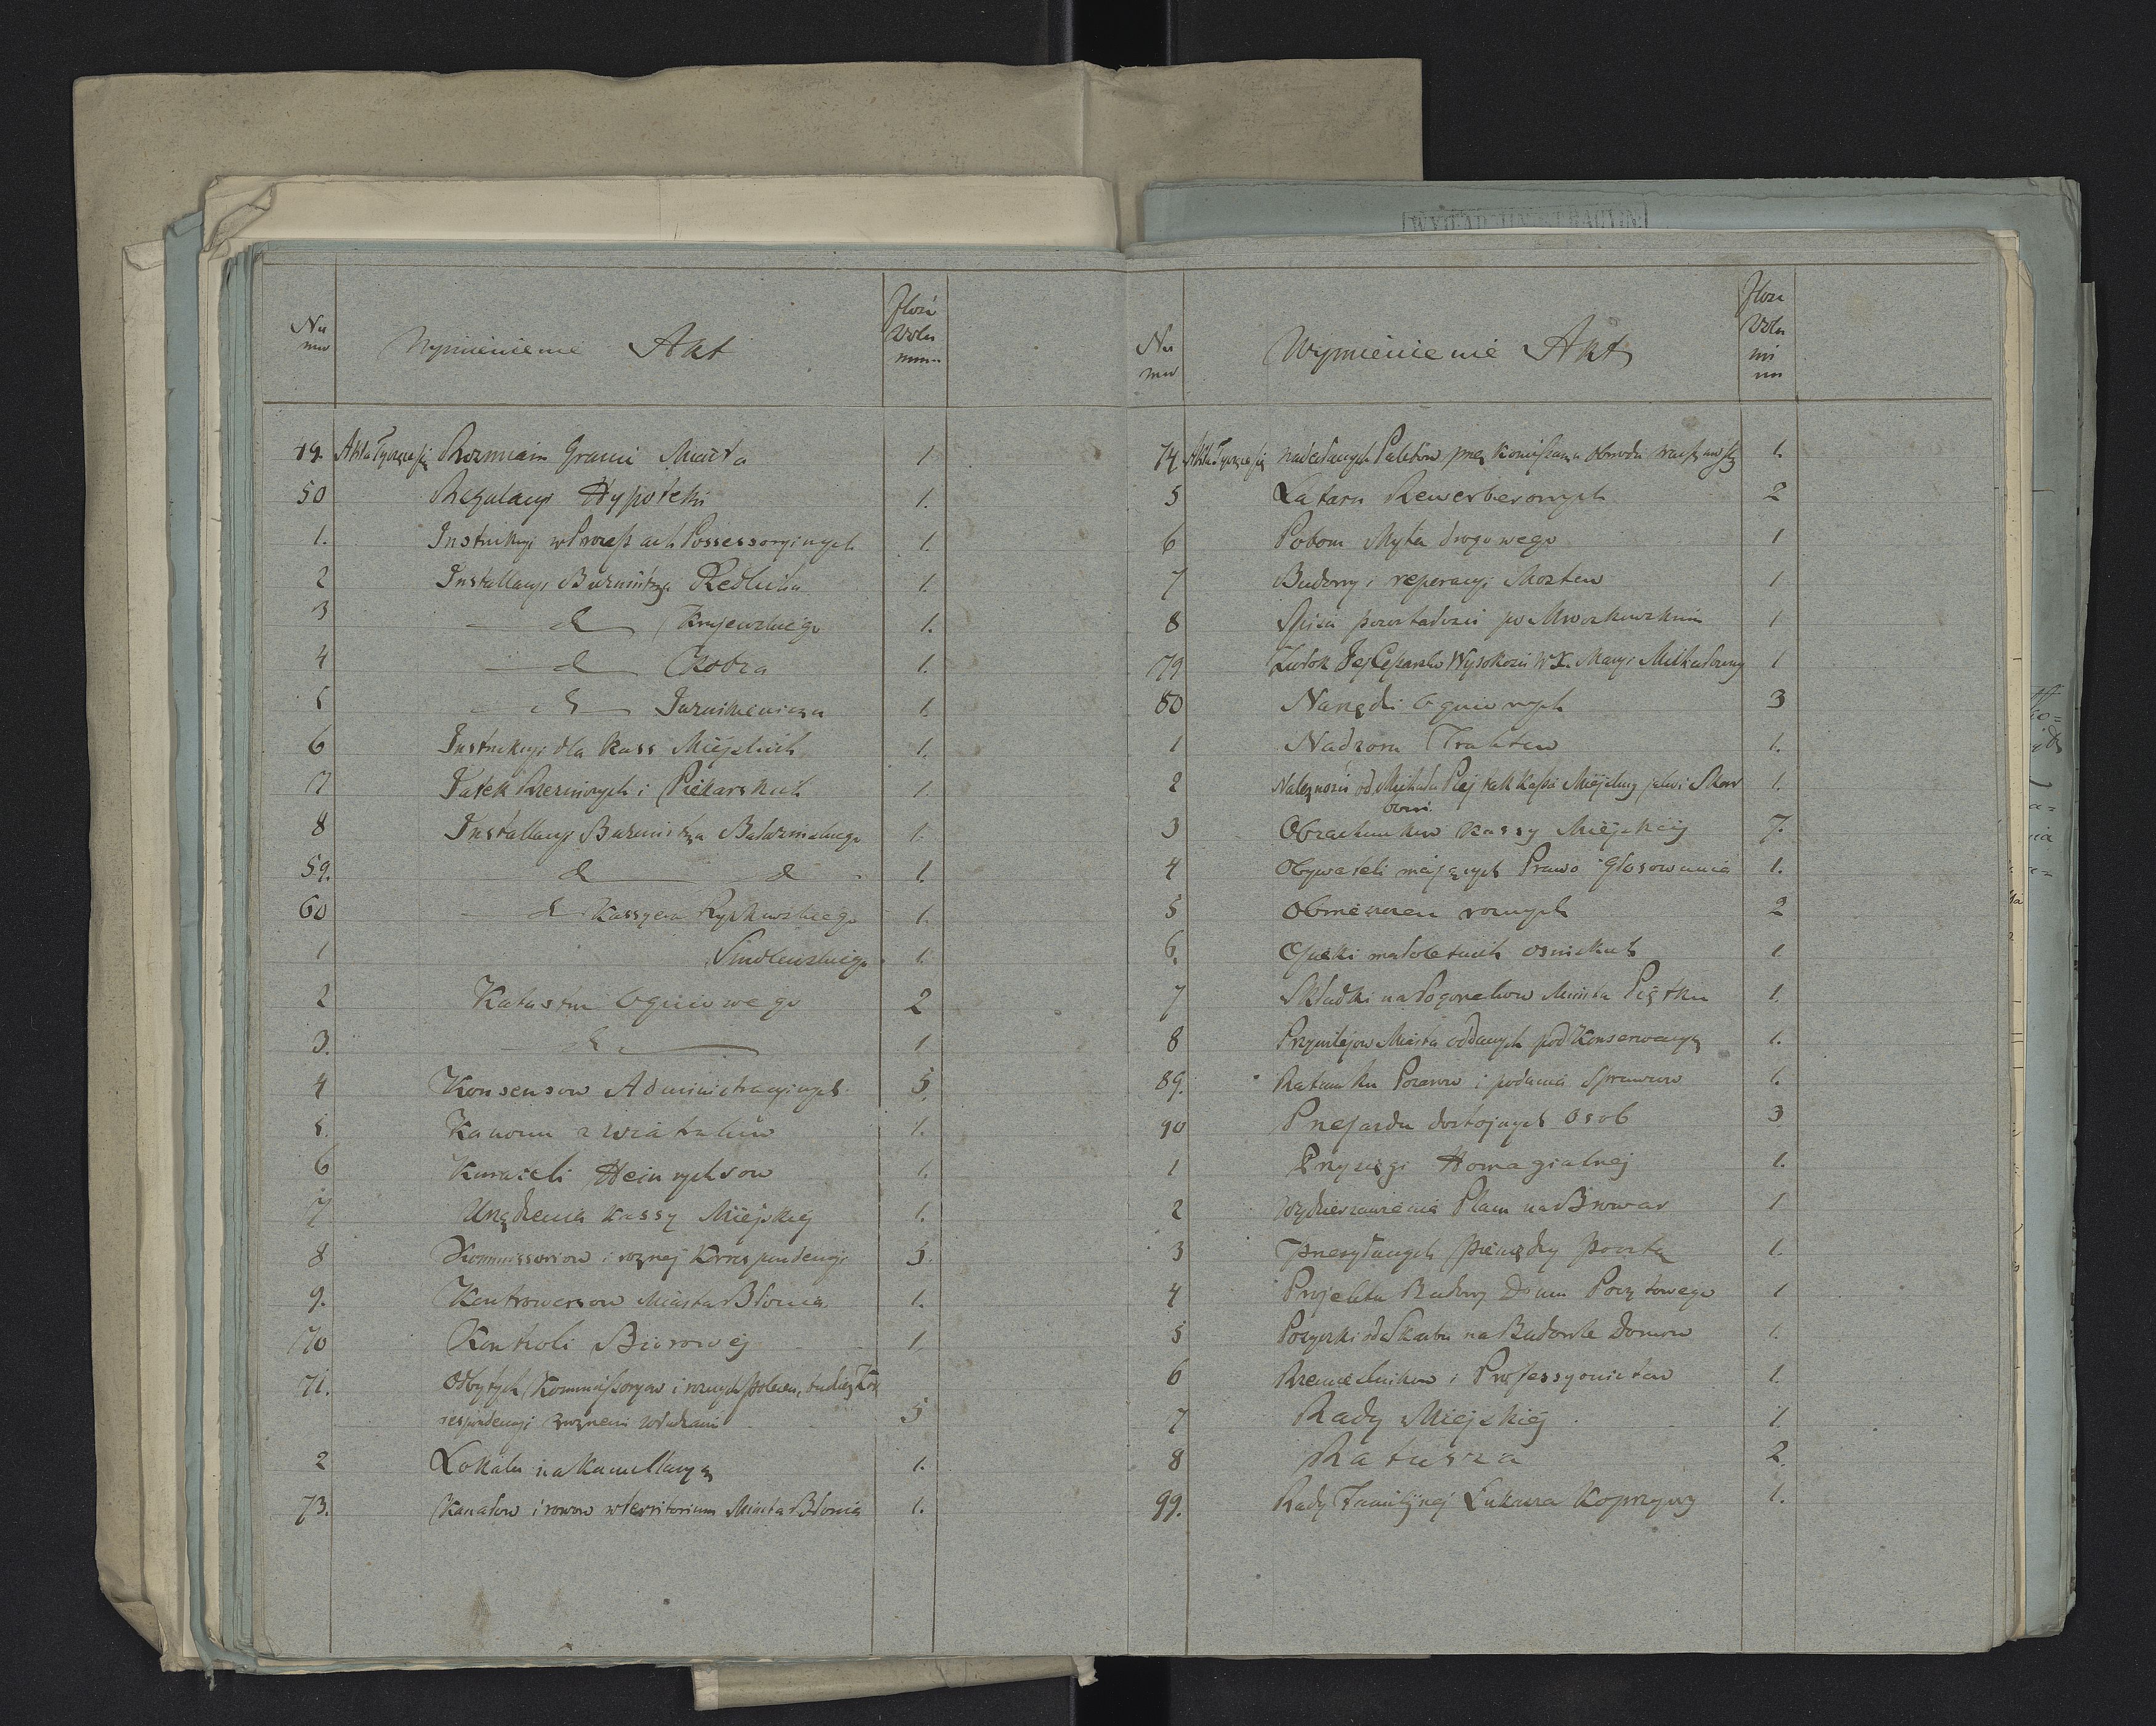 Nu
mer
Wymienienie Akt
Ilość
Wolu
mum
49. Akta Tyczące się Rozmiaru Granic Miasta 1
50 Regulacyi Hypoteki 1.
1. Instrukcyi w Processach Possessoryinych 1.
2 Installacyi Burmistrza Redlicha 1.
3 d Krajewskiego 1.
4 d 1.
5 d 1.
6 Instrukcyi dla Kass Miejskich 1.
7 Jatek Rzezniczych i Piekarskich 1.
8 Installacyi Burmistrza 1.
59. d d 1.
60 d Kassyera 1.
1 1
2 Katastru Ogniowego 2
3. d 1
4 Konsensow Administracyinych 5.
5. Kanonu z Wiatraków 1.
6 Kurateli Heinrychsow 1.
7 Urządzenia Kassy Miejskiej 1.
8 Kommissoriow i roznej Korrespondencyi 5.
9. Kontrowersow Miasta Błonia 1.
70 Kontroli Biurowej 1.
71. Odbytych Kommissoryow i roznych poleceń, tudzież Kor
respondencyi z roznemi Władzami 5
2 Lokalu na Kancellaryą 1.
73. Kanałow i rowow w territorium Miasta Błonia 1.
Nu
mer
Wymienienie Akt
Ilość
Wolu
mi
num
74. Akta Tyczące się nadesłanych Paletow przez Komissarza Obwodu Warszawsk 1.
5 Latarn Rewerberowych 2
6 Poboru Myta drogowego 1
7 Budowy i reperacyi Mostow 1
8 Spisu pozostałości po 1
79 Zwłok Jej Cesarsko Wysokości W.X. Maryi Michałowny 1
80 Narzędzi Ogniowych 3
1 Nadzoru Traktow 1.
2 Należności od Michała Kassie Miejskiej 1.
3 Obrachunkow Kassy Miejskiej 7.
4 Obywateli mających Prawo Głosowania 1.
5 Obwieszczeń roznych 2
6. Opieki małoletnich 1
7 Składki na Pogorzelcow Miasta Piątku 1.
8 Przywilejow Miasta oddanych pod Konserwacyą 1.
89. Ratunku Pożarow i podania Sprawcow 1.
90 Przejazdu dostojnych Osob 3
1 Przysięgi Homagialnej 1.
2 Wydzierzawienia Placu na Browar 1
3 przesyłanych pieniędzy pocztą 1.
4 Projektu Budowy Domu Pocztowego 1
5 Pożyczki od Skarbu na Budowle Domow 1.
6 Rzemieslnikow i Professyonistow 1.
7 Rady Miejskiej 1.
8 Ratusza 2.
99. Rady Familijnej Łukasza Koprzywy 1.